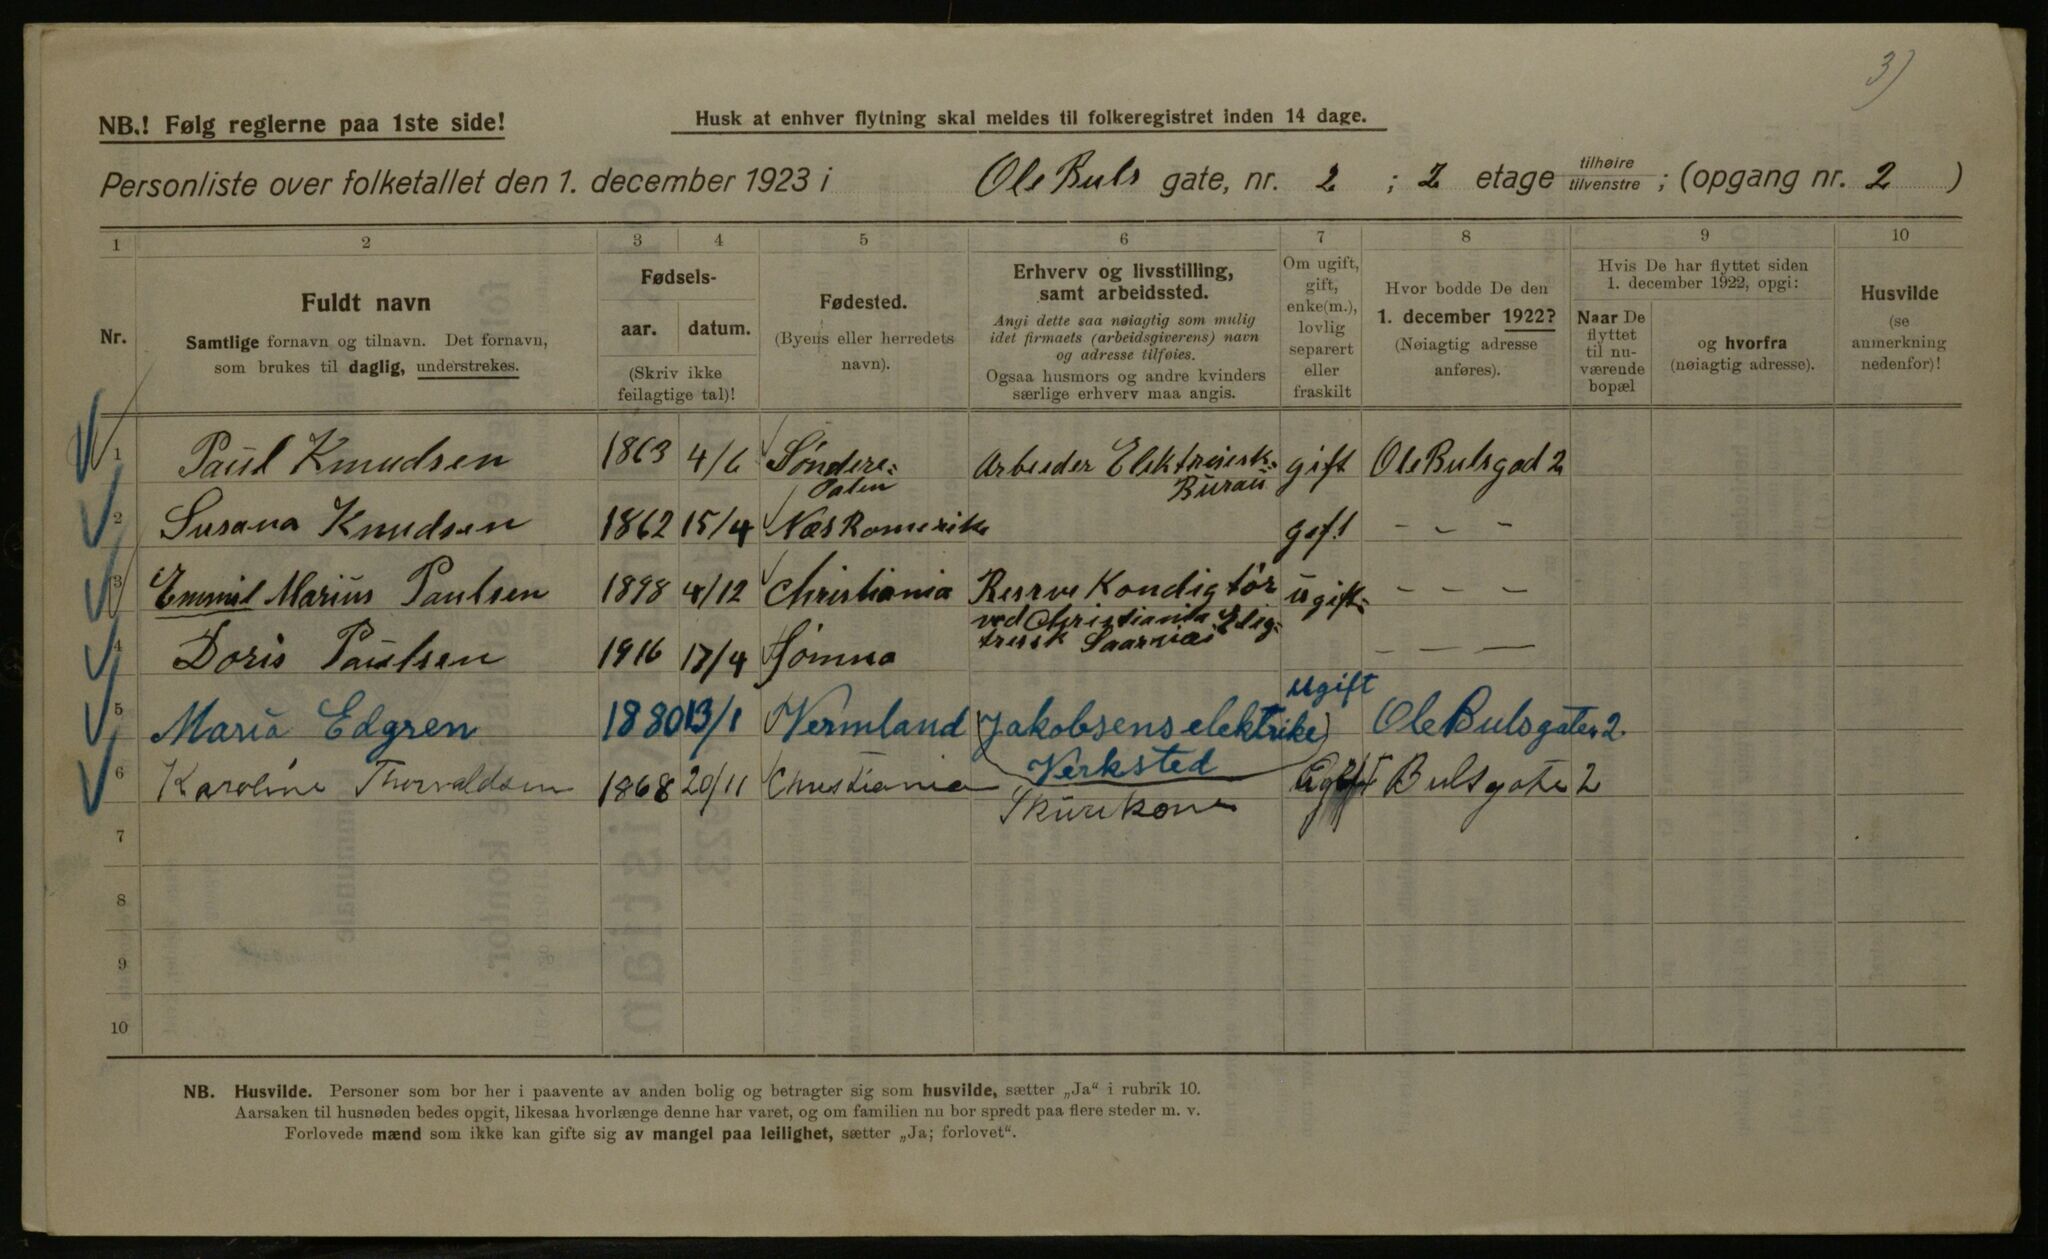 3)
NB.! Følg reglerne paa 1ste side!
Husk at enhver flytning skal meldes til folkeregistret inden 14 dage.
Personliste over folketallet den 1. december 1923 i Ole Buls gate, nr. 2 ; 2 etage tilhøire tilvenstre ; (opgang nr. 2 )
1 2 3 4 5 6 7 8 9 10
Nr.
Fuldt navn
Samtlige fornavn og tilnavn. Det fornavn,
som brukes til daglig, understrekes.
Fødsels-
aar. datum.
(Skriv ikke
feilagtige tal)!
Fødested.
(Byens eller herredets
navn).
Erhverv og livsstilling,
samt arbeidssted.
Angi dette saa nøiagtig som mulig
idet firmaets (arbeidsgiverens) navn
og adresse tilføies.
Ogsaa husmors og andre kvinders
særlige erhverv maa angis.
Om ugift,
gift,
enke(m.),
lovlig
separert
eller
fraskilt
Hvor bodde De den
1. december 1922?
(Nøiagtig adresse
anføres).
Hvis De har flyttet siden
1. december 1922, opgi:
Naar De
flyttet
til nu-
værende
bopæl
og hvorfra
(nøiagtig adresse).
Husvilde
(se
anmerkning
nedenfor)!
1 Paul Knudsen 1863 4/6 Søndre= Arbeider Elektriesk= gift Ole Bulsgad 2
Burau
2 Susana Knudsen 1862 15/4 Næs Romerik gift - - -
3 Emmil Marius Paulsen 1898 4/12 Christiania Resrve Kondigtør ugift= - - -
ved Christiania Elig=
tresk
4 Doris Paulsen 1916 17/4 Sømna - - -
5 Maria Edgren 1880 13/1 Vermland (Jakobsens elektrike) ugift Ole Bulsgaten 2.
Verksted
6 Karoline Thorvaldsen 1868 20/11 Christiania Bulsgate 2
Skurikone
7
8
9
10
NB. Husvilde. Personer som bor her i paavente av anden bolig og betragter sig som husvilde, sætter „Ja“ i rubrik 10.
Aarsaken til husnøden bedes opgit, likesaa hvorlænge denne har varet, og om familien nu bor spredt paa flere steder m. v.
Forlovede mænd som ikke kan gifte sig av mangel paa leilighet, sætter „Ja; forlovet“.